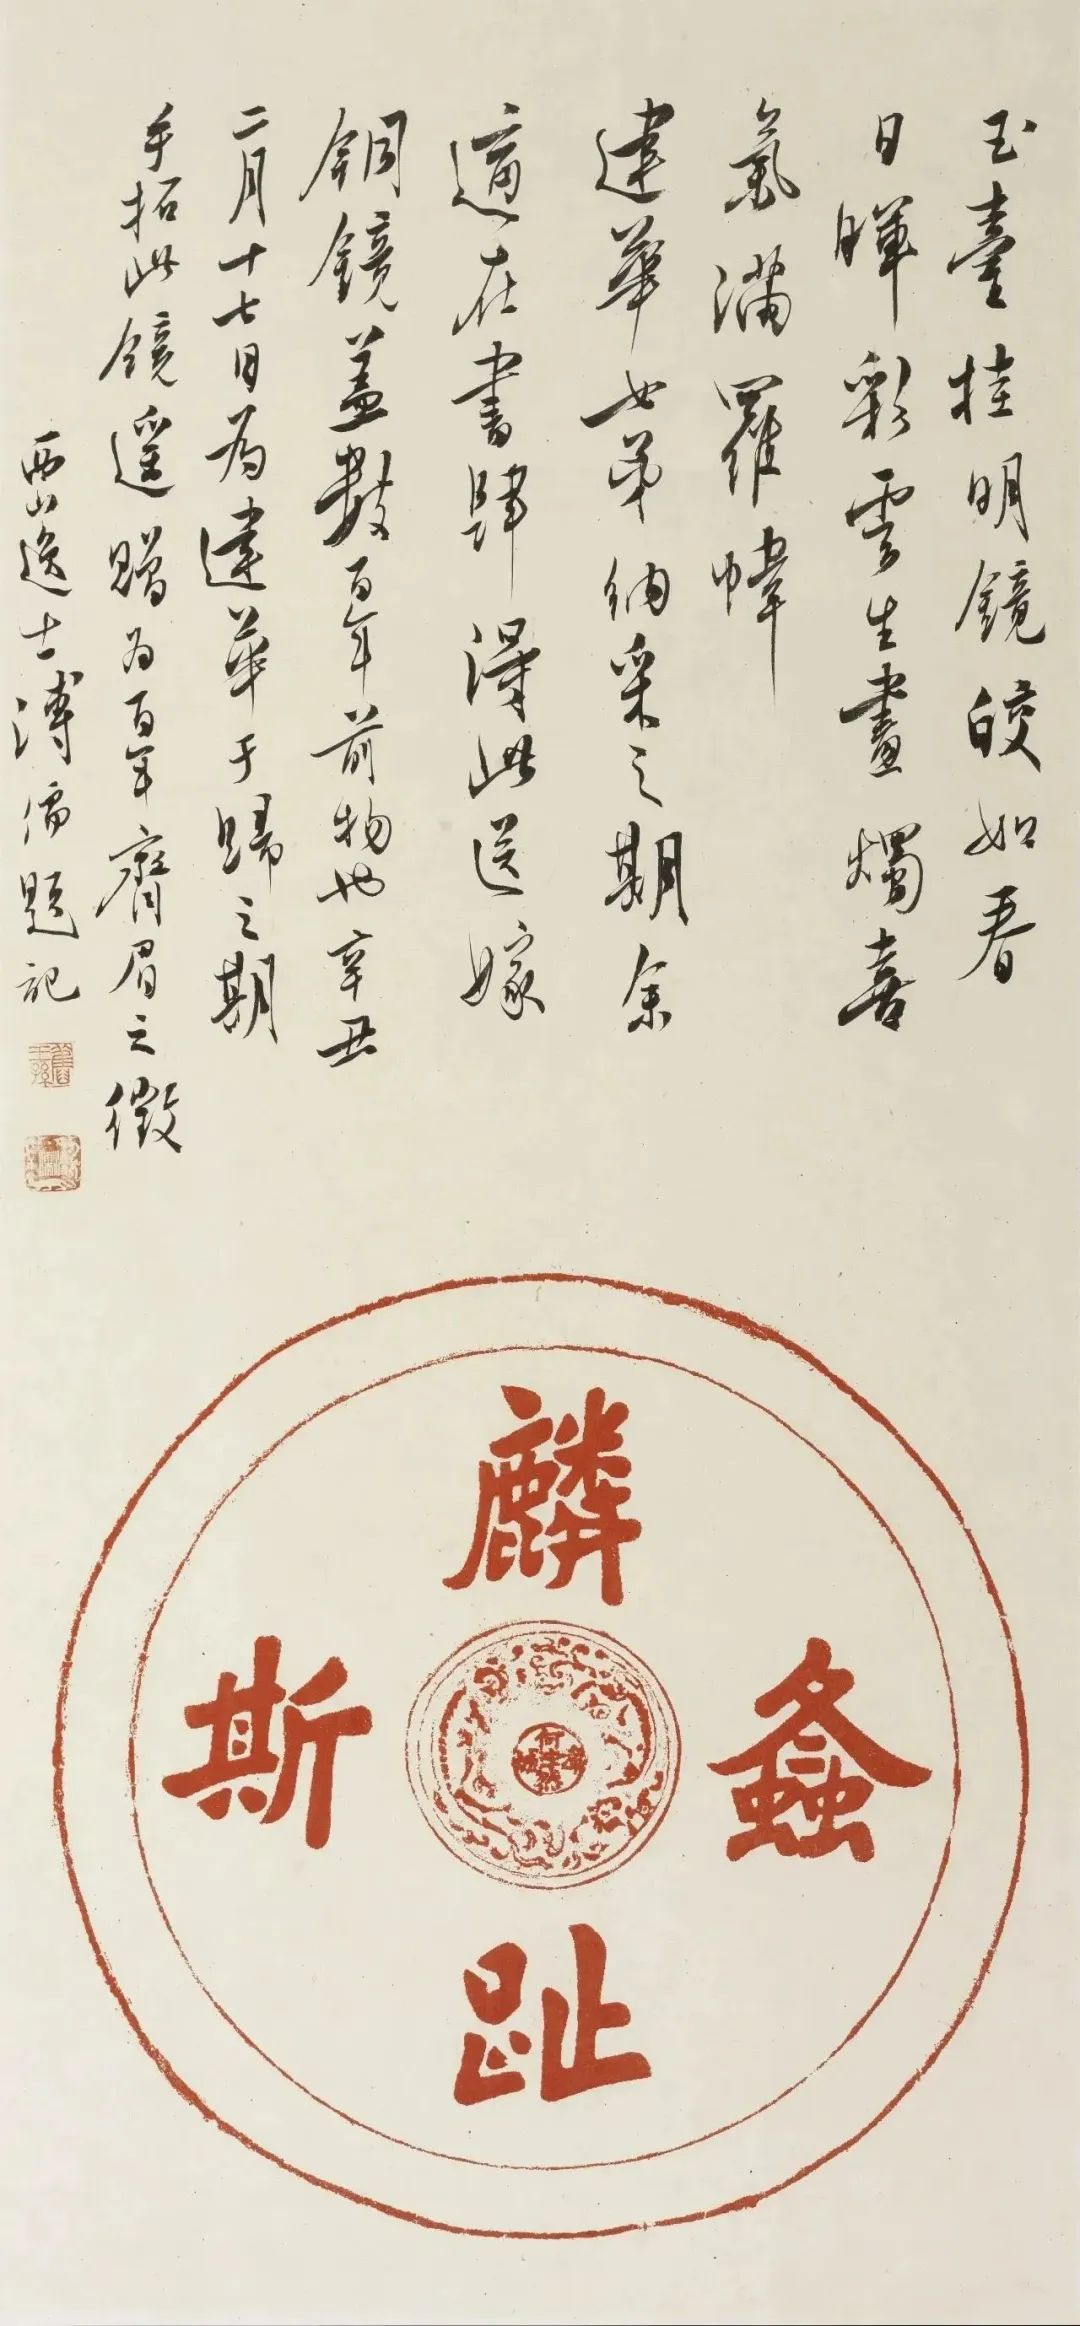 玉臺挂明鏡皎如春
日暉彩雲生畫燭喜
氣滿羅幃
建華女弟納采之期余
適在書肆得此送嫁
銅鏡蓋數百年前物也辛丑
二月十七日為建華于歸之期
手拓此鏡遥贈為百年齊眉之徵
西山逸士溥儒題記
舊王孫
麟
螽
斯
趾